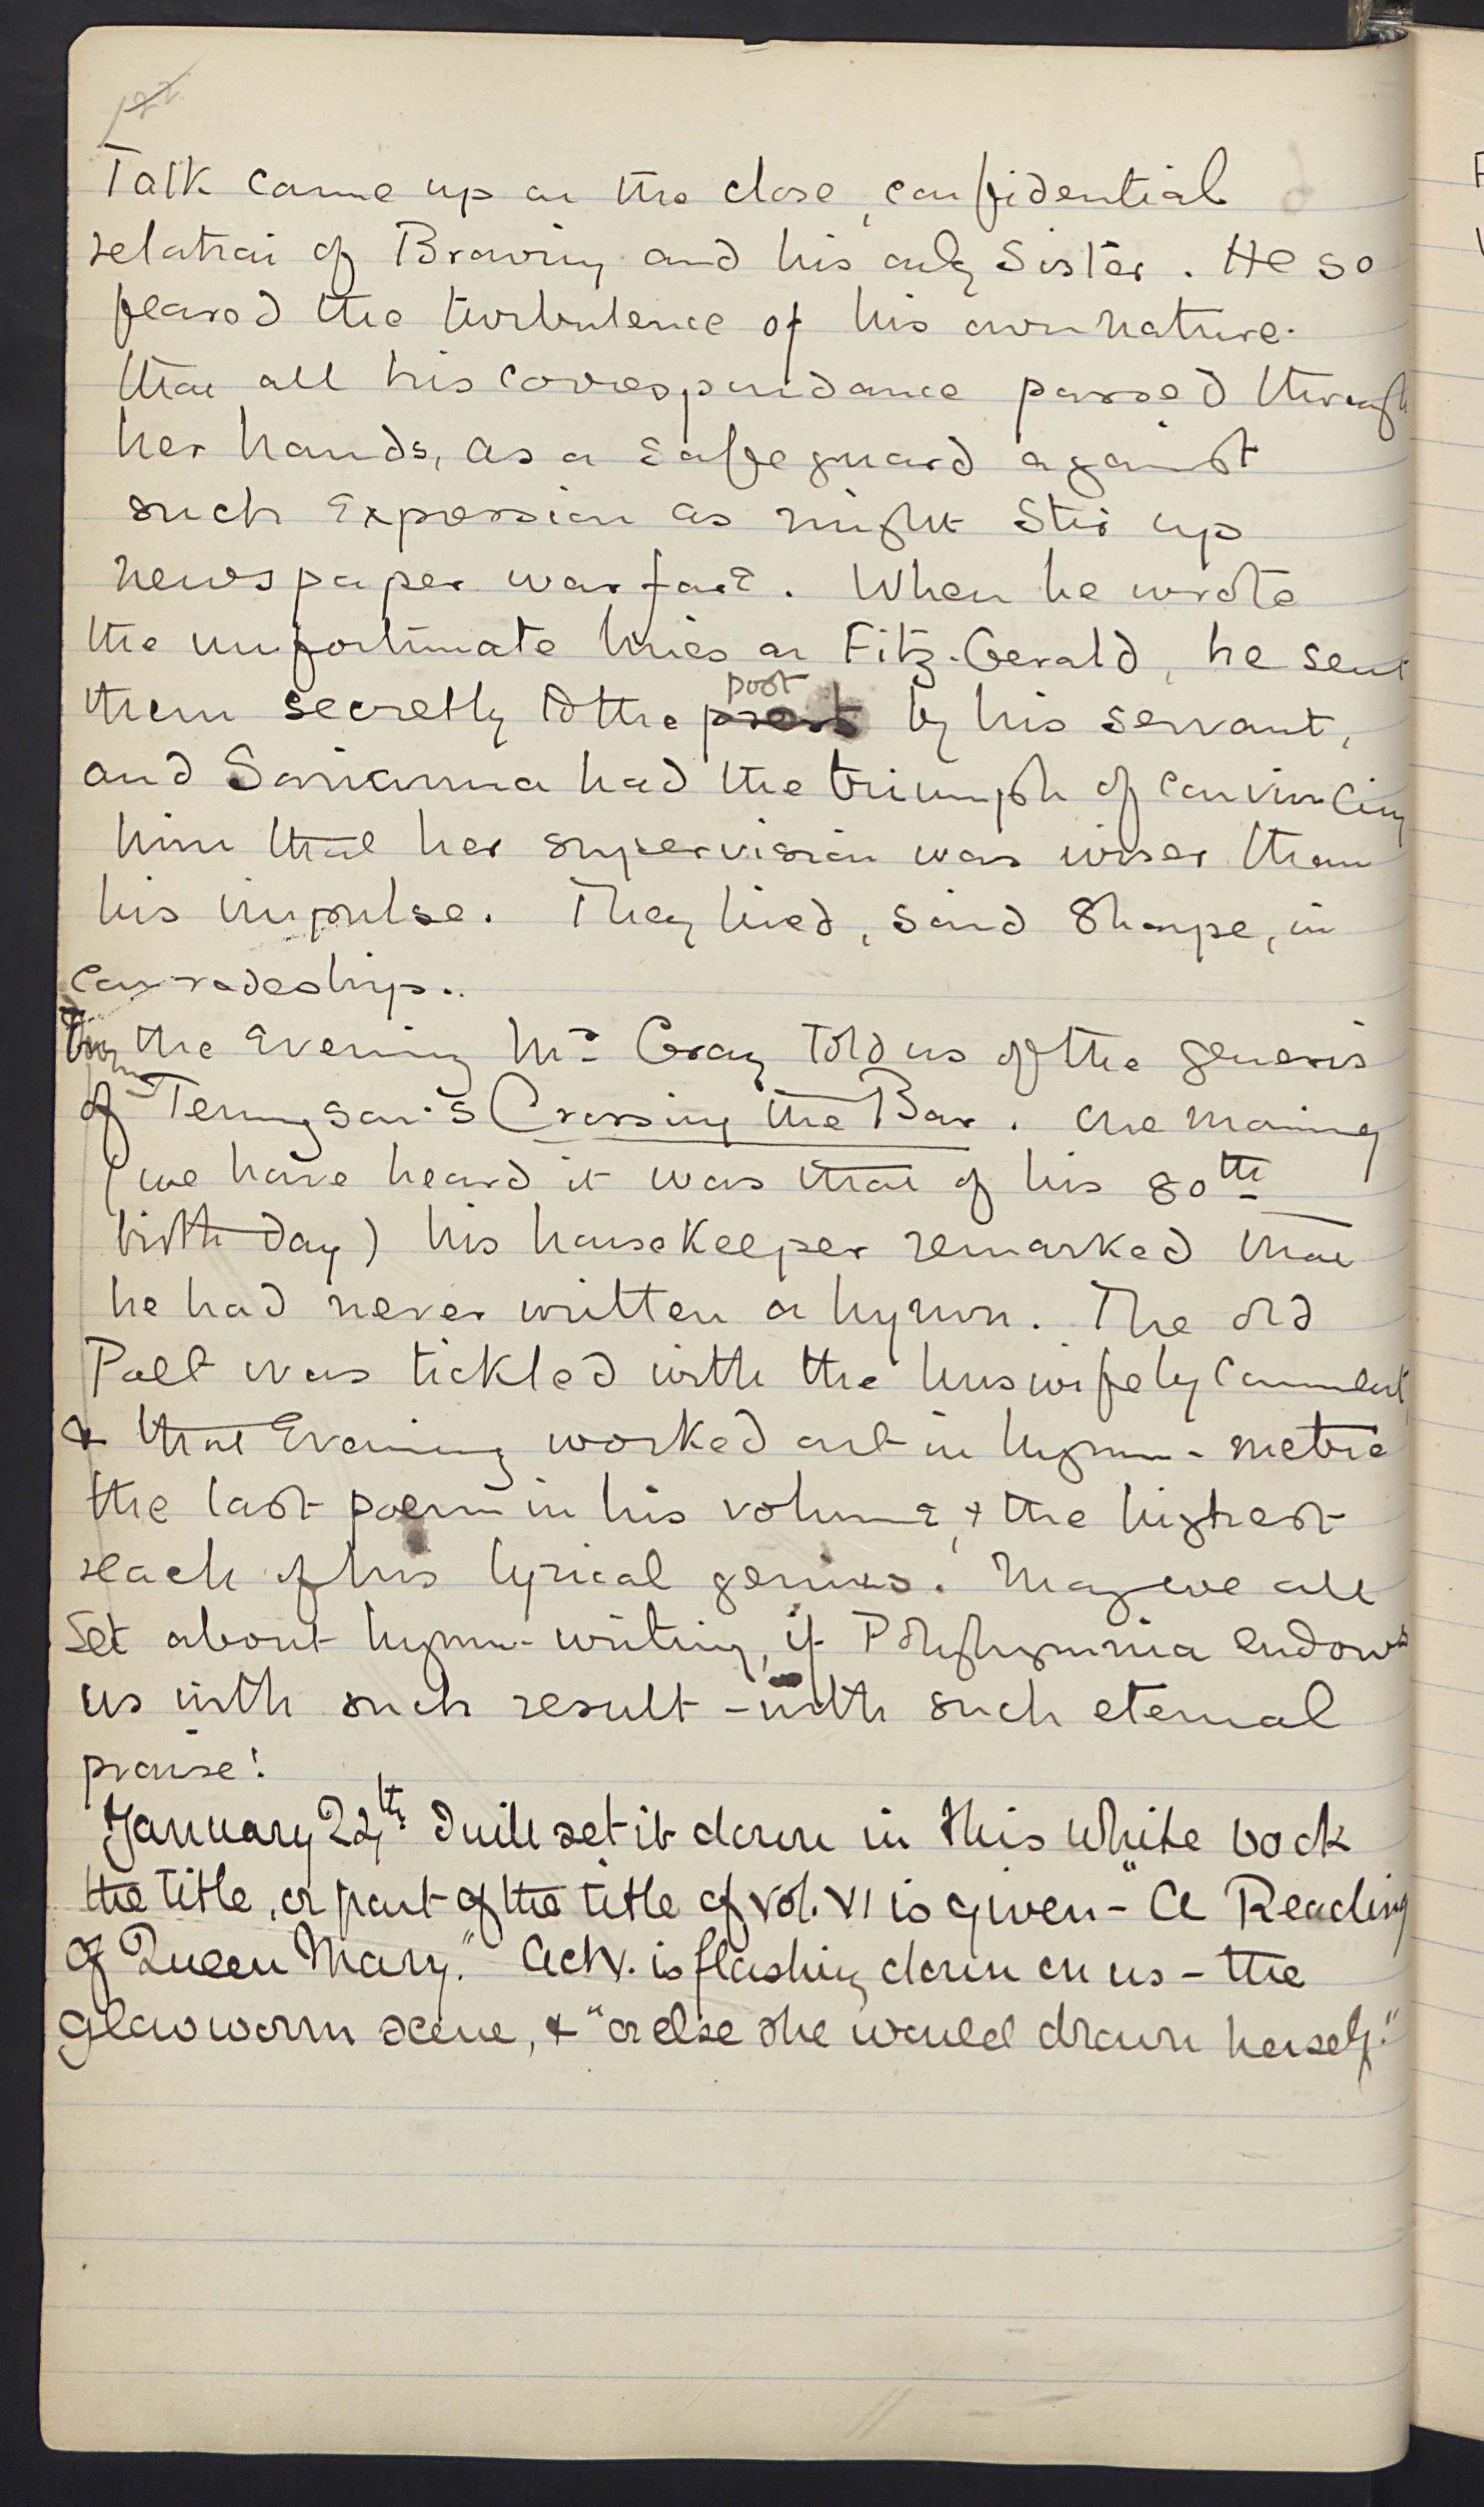 Talk came up on the close, confidential
relation of Browning and his only Sister. He so
feared the turbulence of his own nature
that all his correspondance passed through
her hands, as a safeguard against
such expression as might stir up
newspaper warfare. When he wrote
the unfortunate lines on Fitz-Gerald, he sent
them secretly to the post by his servant,
and Sarianna had the triumph of convincing
him that her supervision was wiser than
his impulse. They lived, said Sharpe, in
comradeship.
the Evening Mr Gray told us of the genesis
of Tennyson's Crossing the Bar. One morning
(we have heard it was that of his 80th
birthday) his housekeeper remarked that
he had never written a hymn. The old
Poet was tickled with the huswifely comment,
& that Evening worked out in hymn-metre
the last poem in his volume, & the highest
reach of his lyrical genius. May we all
Set about hymn-writing, if Polyhymnia endows
us with such result - with such eternal
praise!
January 22th I will set it down in this White book
the title, or part of the title of vol. VI is given - "A Reading
of Queen Mary." Act V. is flashing down on us - the
glowworm scene, & "or else she would drown herself."